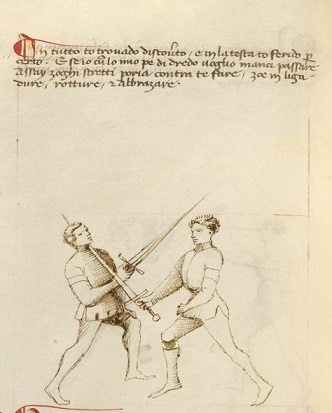 In tutto to trovado discoverto, e in la testa to ferido per
certo. E se io cu lo mio pe di dredo voglio inanci passare
Assay zoghi stretti poria contra te fare, zoe in liga
dure, rotture, e Abrazare.